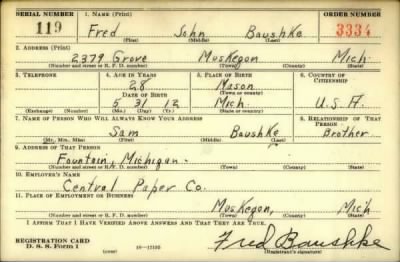 SERIAL NUMBER 1. NAME (Print) ORDER NUMBER
119 Fred John Baushke 3334
(First) (Middle) (Last)
2. ADDRESS (Print)
2379 Grove Muskegon Mich
(Number and street or R. F. D. number) (Town) (County) (State)
3. TELEPHONE 4. AGE IN YEARS 5. PLACE OF BIRTH 6. COUNTRY OF CITIZENSHIP
28 Mason
DATE OF BIRTH (Town or county)
5 31 12 Mich. U.S.A.
(Exchange) (Number) (Mo.) (Day) (Yr.) (State or country)
7. NAME OF PERSON WHO WILL ALWAYS KNOW YOUR ADDRESS 8. RELATIONSHIP OF THAT PERSON
Sam Baushke Brother
(Mr., Mrs., Miss) (First) (Middle) (Last)
9. ADDRESS OF THAT PERSON
Fountain, Michigan.
(Number and street or R. F. D. number) (Town) (County) (State)
10. EMPLOYER'S NAME
Central Paper Co.
11. PLACE OF EMPLOYMENT OR BUSINESS
Muskegon, Mich
(Number and street or R. F. D. number) (Town) (County) (State)
I AFFIRM THAT I HAVE VERIFIED ABOVE ANSWERS AND THAT THEY ARE TRUE.
REGISTRATION CARD
D. S. S. Form 1 (over) 16—17105 Fred Baushke
(Registrant's signature)